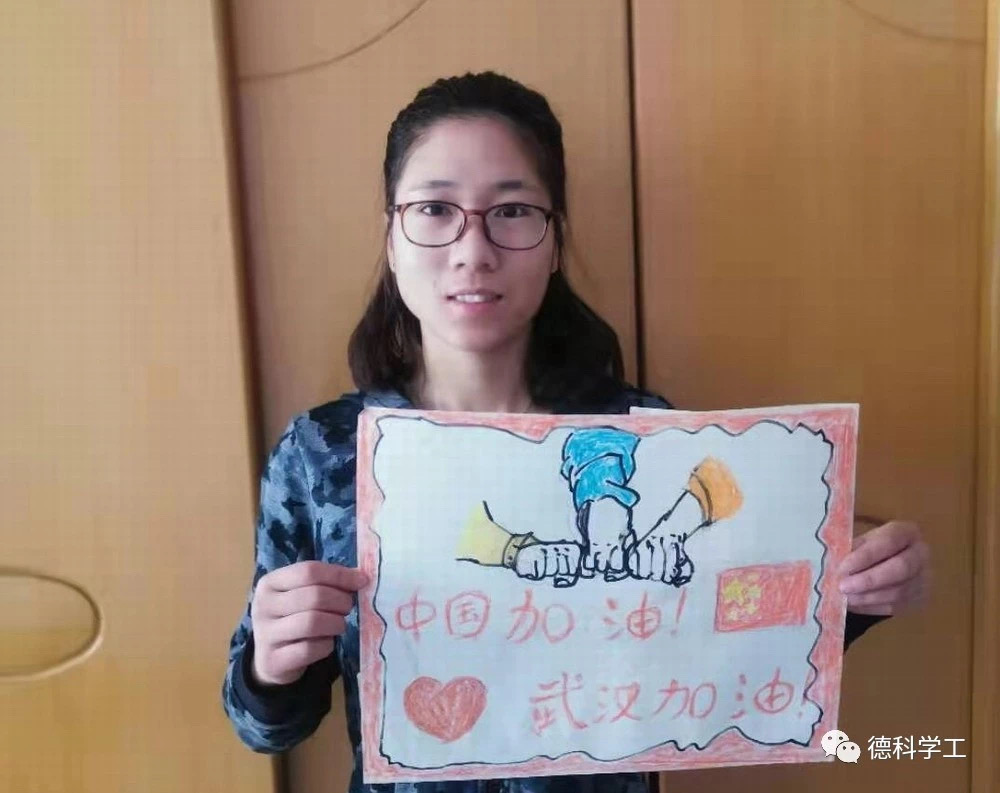 中国加油!
武汉加油!
德科学工